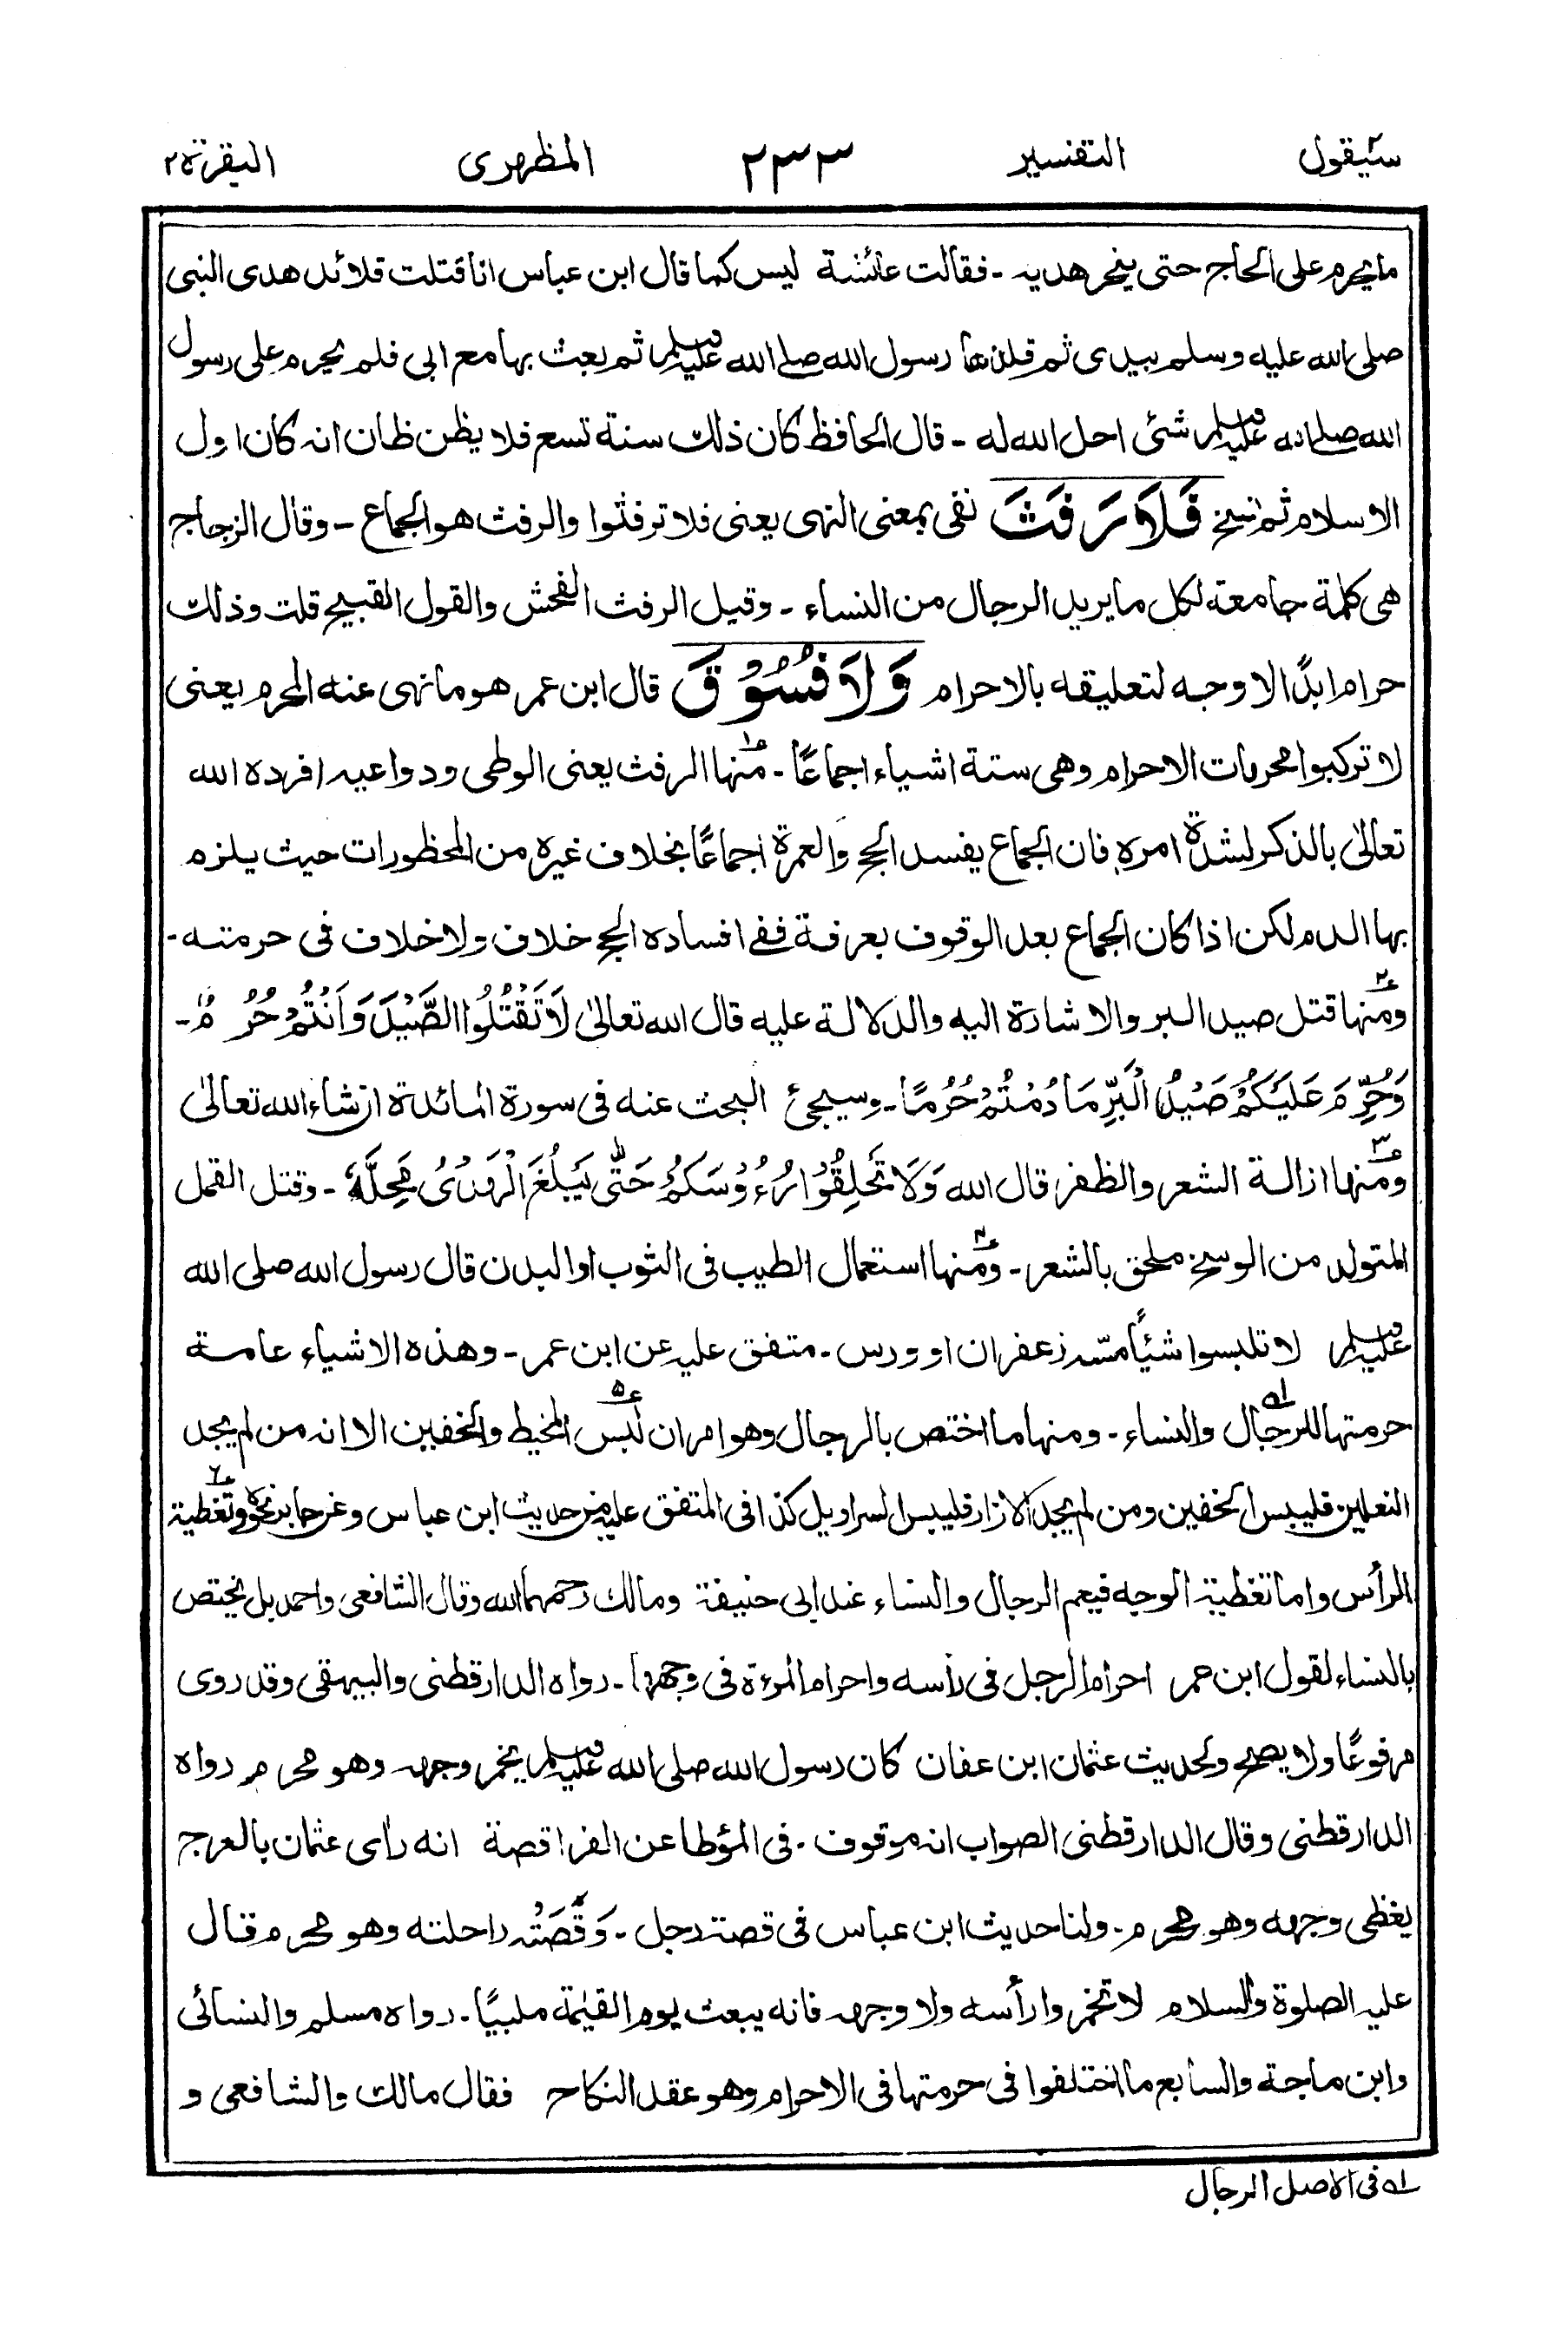 سيقول ٢ التفسير ٢٣٣ المظهرى البقرة ٢
ما يحرم على الحاج حتى ينحر هديه - فقالت عائشة ليس كما قال ابن عباس انا فتلت قلائد هدى النبى
صلى الله عليه وسلم بيدى ثم قلدها رسول الله صلے الله عليه وسلم ثم بعث بها مع ابى فلم يحرم على رسول
الله صلے الله عليه وسلم شئ احل الله له - قال الحافظ كان ذلك سنة تسع فلا يظن ظان انه كان اول
الاسلام ثم نسخ فَلَا رَفَثَ نفى بمعنى النهى يعنى فلا ترفثوا والرفث هو الجماع - وقال الزجاج
هى كلمة جامعة لكل ما يريد الرجال من النساء - وقيل الرفث الفحش والقول القبيح قلت وذلك
حرام ابدًا لا وجه لتعليقه بالاحرام وَلَا فُسُوْقَ قال ابن عمر هو ما نهى عنه المحرم يعنى
لا تركبوا محرمات الاحرام وهى ستة اشياء اجماعًا - منها الرفث يعنى الوطى ودواعيه افرده الله
تعالىٰ بالذكر لشدة امره فان الجماع يفسد الحج والعمرة اجماعًا بخلاف غيره من المحظورات حيث يلزم
بها الدم لكن اذا كان الجماع بعد الوقوف بعرفة ففے افساده الحج خلاف ولا خلاف فى حرمته -
ومنها قتل صيد البر والاشارة اليه والدلالة عليه قال الله تعالىٰ لَا تَقْتُلُوا الصَّيْدَ وَاَنْتُمْ حُرُمٌ -
وَحُرِّمَ عَلَيْكُمْ صَيْدُ الْبَرِّ مَا دُمْتُمْ حُرُمًا - وسيجئ البحث عنه فى سورة المائدة ان شاء الله تعالىٰ
ومنها ازالة الشعر والظفر قال الله وَلَا تَحْلِقُوْا رُءُوْسَكُمْ حَتّٰى يَبْلُغَ الْهَدْىُ مَحِلَّهٗ - وقتل القمل
المتولد من الوسخ ملحق بالشعر - ومنها استعمال الطيب فى الثوب او البدن قال رسول الله صلى الله
عليه وسلم لا تلبسوا شيئًا مسّه زعفران او ورس - متفق عليه عن ابن عمر - وهذه الاشياء عامة
حرمتها للرجال والنساء - ومنها ما اختص بالرجال وهو امران لبس المخيط والخفين الا انه من لم يجد
النعلين فليبس الخفين ومن لم يجد الازار فليبس السراويل كذا فى المتفق عليه من حديث ابن عباس وعن جابر نحوه وتغطية
الرأس واما تغطية الوجه فيعم الرجال والنساء عند ابى حنيفة ومالك رحمهما الله وقال الشافعى واحمد بل يختص
بالنساء لقول ابن عمر احرام الرجل فى رأسه واحرام المرءة فى وجهها - رواه الدارقطنى والبيهقى وقد روى
مرفوعًا ولا يصح ولحديث عثمان ابن عفان كان رسول الله صلى الله عليه وسلم يخمر وجهه وهو محرم رواه
الدارقطنى وقال الدارقطنى الصواب انه موقوف - فى المؤطا عن الفرافصة انه رأى عثمان بالعرج
يغطى وجهه وهو محرم - ولنا حديث ابن عباس فى قصة رجل - وَقَّصَتْه راحلته وهو محرم قال
عليه الصلوة والسلام لا تخمروا رأسه ولا وجهه فانه يبعث يوم القيٰمة ملبيًا - رواه مسلم والنسائى
وابن ماجة والسابع ما اختلفوا فى حرمتها فى الاحرام وهو عقد النكاح فقال مالك والشافعى و
له فى الاصل الرجال